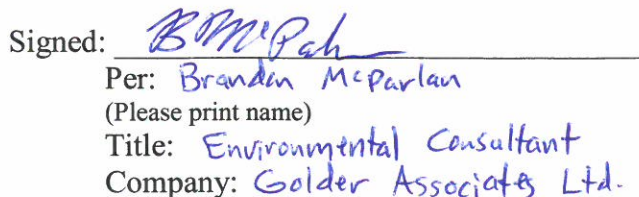 Signed: B McPah
Per: Brandon McParlan
(Please print name)
Title: Environmental Consultant
Company: Golder Associates Ltd.